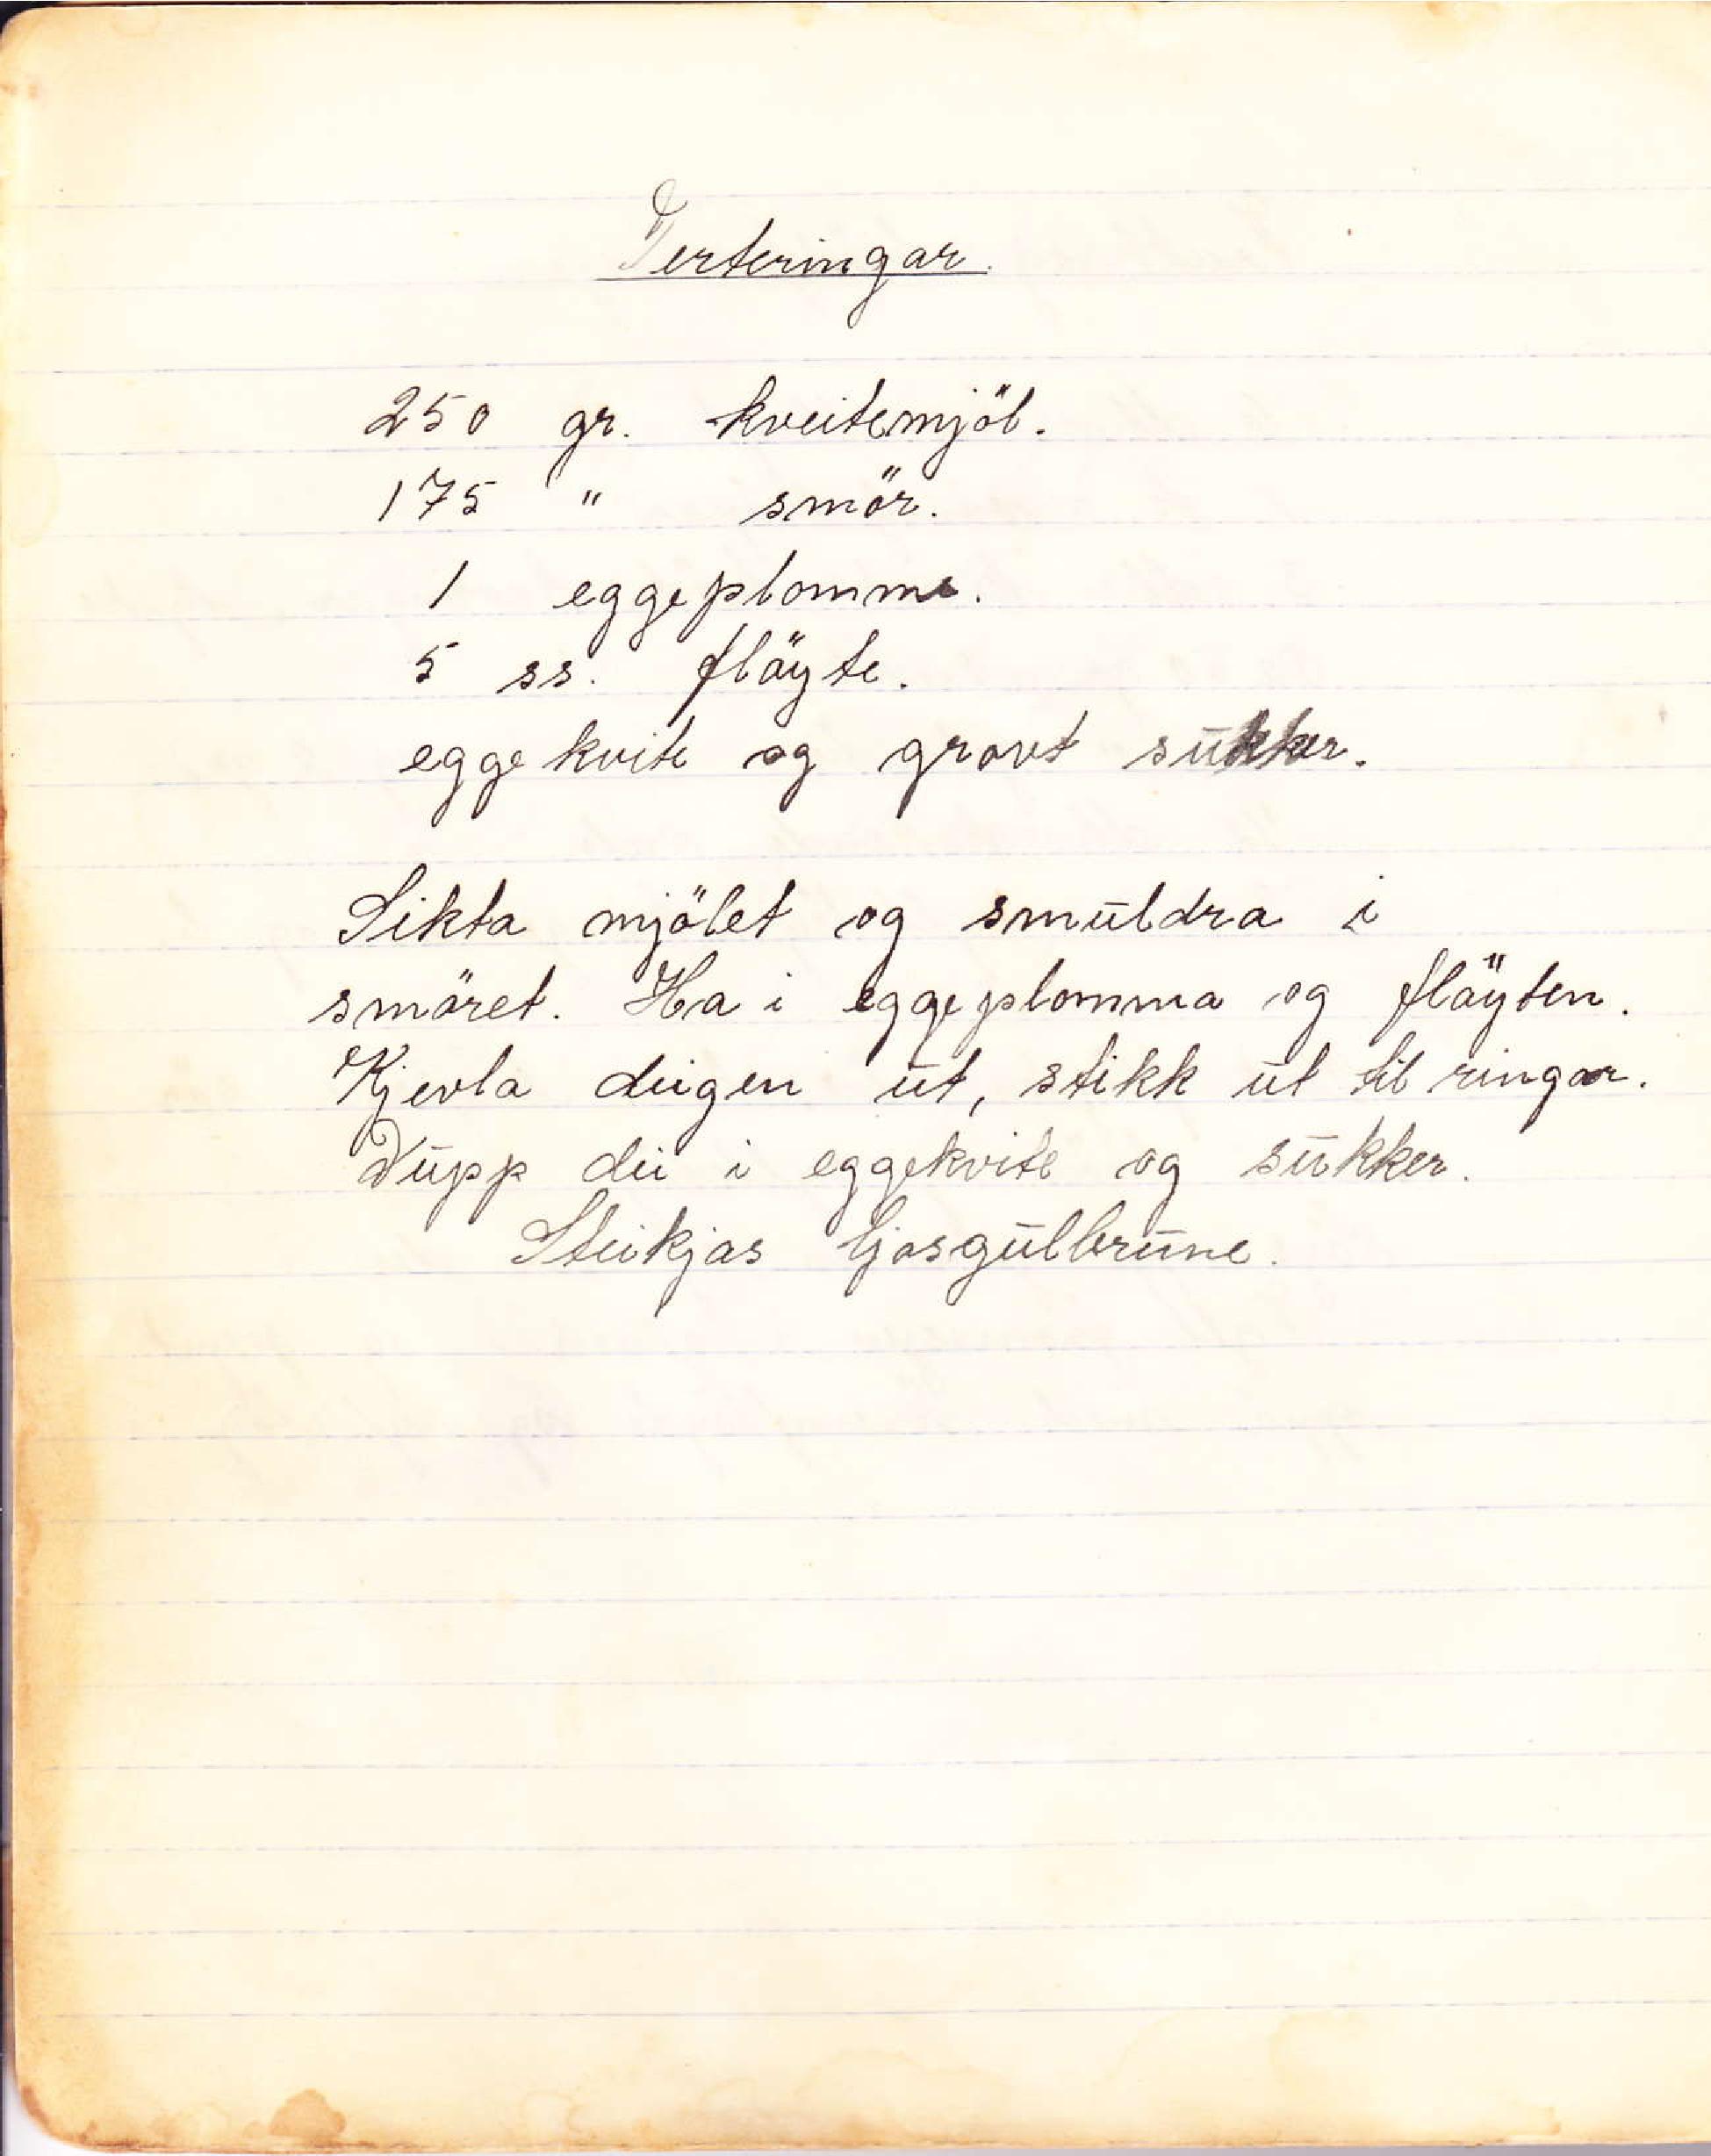 Terteringar.
250 gr. kveitemjöl.
175 " smör.
1 eggeplomme.
5 ss. flöyte.
eggekvite og grovt sukker.
Sikta mjölet og smuldra i
smöret. Ha i eggeplomma og flöyten.
Kjevla deigen ut, stikk ut til ringar.
Dupp dei i eggekvite og sukker.
Steikjas ljosgulbrune.